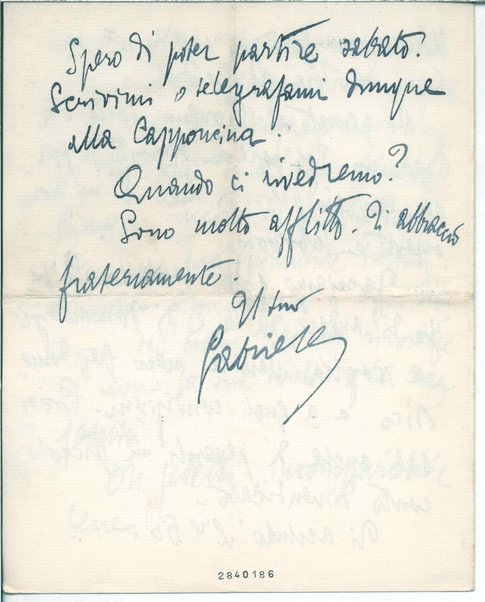 Spero di poter partire sabato.
Scrivimi o telegrafami dunque
alla Capponcina.
Quando ci rivedremo?
Sono molto afflitto. Ti abbraccio
fraternamente.
Il tuo
Gabriele
2840186